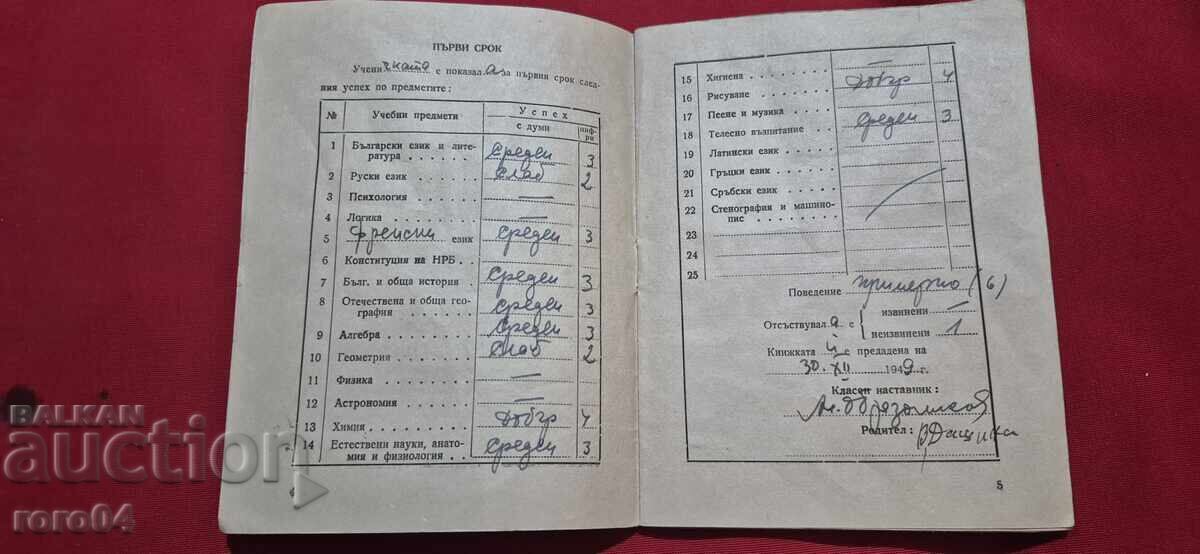 ПЪРВИ СРОК
Ученичката е показала за първи срок след-
ния успех по предметите:
№ Учебни предмети Успех
с думи циф-
ри
1 Български език и лите-
ратура Среден 3
2 Руски език Слаб 2
3 Психология —
4 Логика —
5 Френски език Среден 3
6 Конституция на НРБ
7 Бълг. и обща история Среден 3
8 Отечествена и обща гео-
графия Среден 3
9 Алгебра Среден 3
10 Геометрия Слаб 2
11 Физика —
12 Астрономия —
13 Химия Добър 4
14 Естествени науки, анато-
мия и физиология Среден 3
4
15 Хигиена —
16 Рисуване Добър 4
17 Пеене и музика
18 Телесно възпитание Среден 3
19 Латински език
20 Гръцки език
21 Сръбски език
22 Стенография и машино-
пис
23
24
25
Поведение примерно (6)
Отсъствувала е { извинени —
неизвинени 1
Книжката ѝ е предадена на
30. XII 1949 г.
Класен наставник:
Родител:
5
BALKAN
auction
roro04